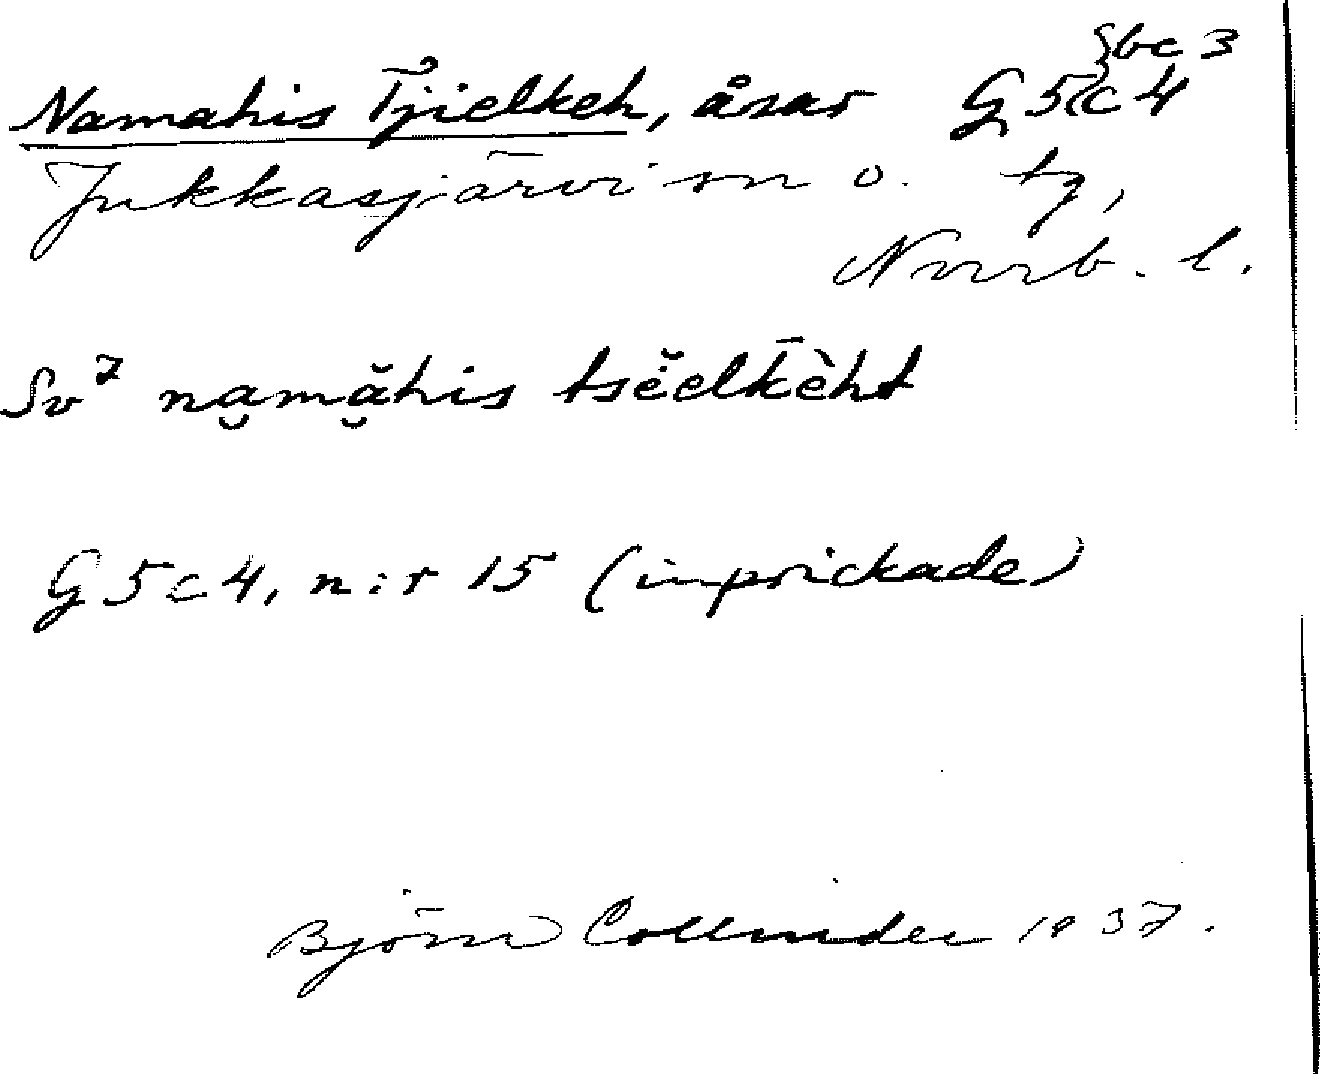 Namahis Tjielkeh, åsar G 5 { bc 3
c 4
Jukkasjärvi sn o. tg,
Norrb. l.
Sv⁷ na̮mă̮his tsĕ̇elk̄èht
G 5 c 4, n:r 15 (inprickade)
Björn Collinder 1937.